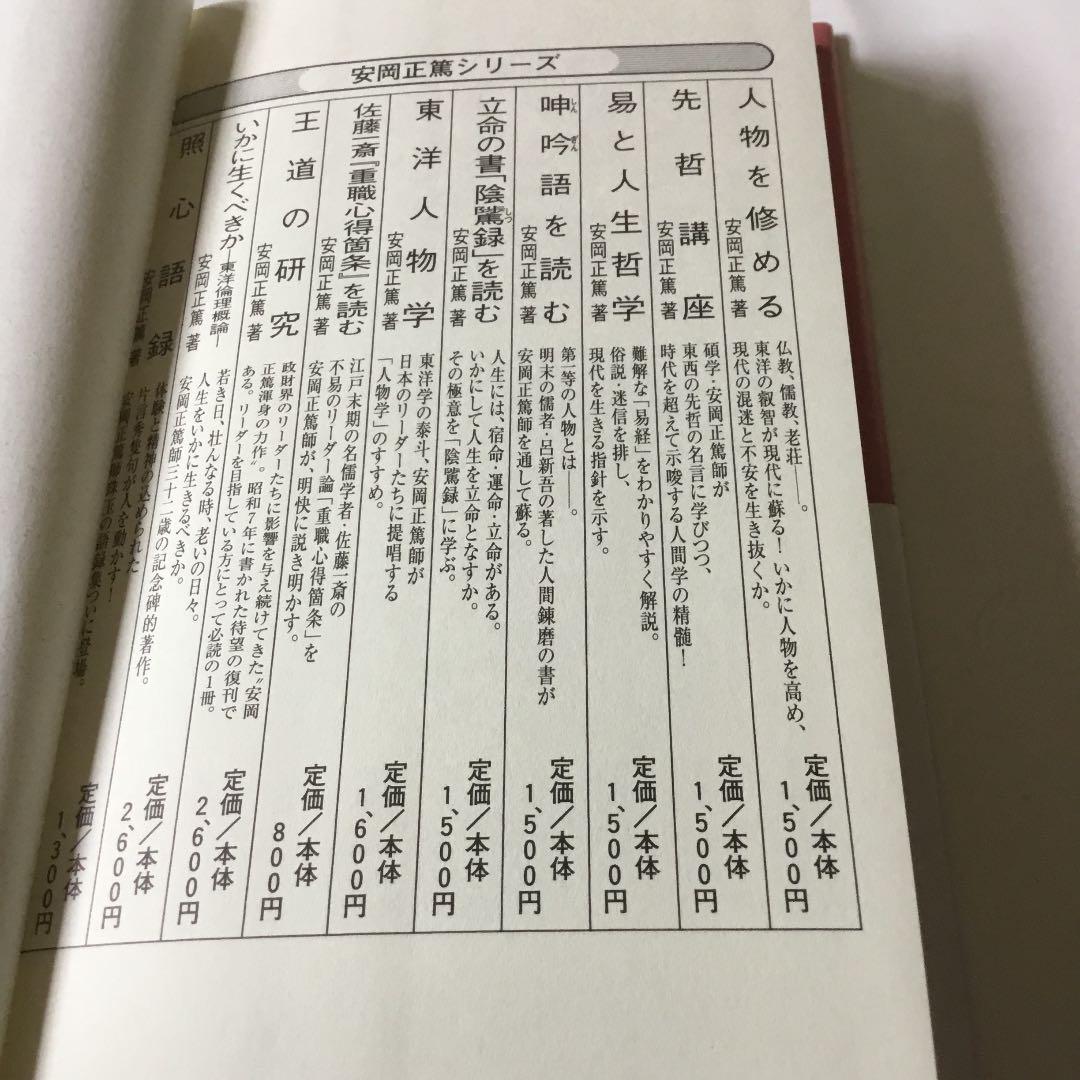 安岡正篤シリーズ
人物を修める
安岡正篤 著
仏教、儒教、老荘――。
東洋の叡智が現代に蘇る！いかに人物を高め、
現代の混迷と不安を生き抜くか。
定価／本体
1,500円
先哲講座
安岡正篤 著
碩学・安岡正篤師が
東西の先哲の名言に学びつつ、
時代を超えて示唆する人間学の精髄！
定価／本体
1,500円
易と人生哲学
安岡正篤 著
難解な「易経」をわかりやすく解説。
俗説・迷信を排し、
現代を生きる指針を示す。
定価／本体
1,500円
呻吟語を読む
しん ぎん
安岡正篤 著
第一等の人物とは――。
明末の儒者・呂新吾の著した人間錬磨の書が
安岡正篤師を通して蘇る。
定価／本体
1,500円
立命の書「陰騭録」を読む
しつ
安岡正篤 著
人生には、宿命・運命・立命がある。
いかにして人生を立命となすか。
その極意を「陰騭録」に学ぶ。
定価／本体
1,500円
東洋人物学
安岡正篤 著
東洋学の泰斗、安岡正篤師が
日本のリーダーたちに提唱する
「人物学」のすすめ。
定価／本体
1,600円
佐藤一斎『重職心得箇条』を読む
安岡正篤 著
江戸末期の名儒学者・佐藤一斎の
不易のリーダー論「重職心得箇条」を
安岡正篤師が、明快に説き明かす。
定価／本体
800円
王道の研究
安岡正篤 著
政財界のリーダーたちに影響を与え続けてきた〝安岡
正篤渾身の力作〟。昭和7年に書かれた待望の復刊で
ある。リーダーを目指している方にとって必読の1冊。
定価／本体
2,600円
いかに生くべきか―東洋倫理概論―
安岡正篤 著
若き日、壮んなる時、老いの日々。
人生をいかに生きるべきか。
安岡正篤師三十二歳の記念碑的著作。
定価／本体
2,600円
照心語録
安岡正篤 著
体験と精神の込められた
片言隻句が人を動かす！
安岡正篤師珠玉の語録集ついに登場。
定価／本体
1,300円